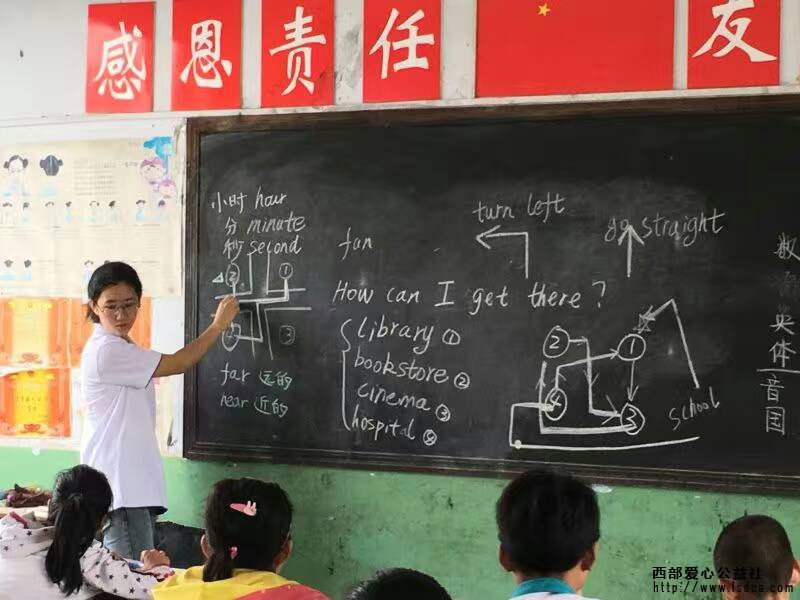 感恩 责任 友
小时 hour
分 minute
秒 second
② ①
③
far 远的
near 近的
fan
turn left
go straight
How can I get there?
library ①
bookstore ②
cinema ③
hospital ④
② ①
④ ③
school
数
英
体
音
国
西部爱心公益社
http://www.lsdca.com